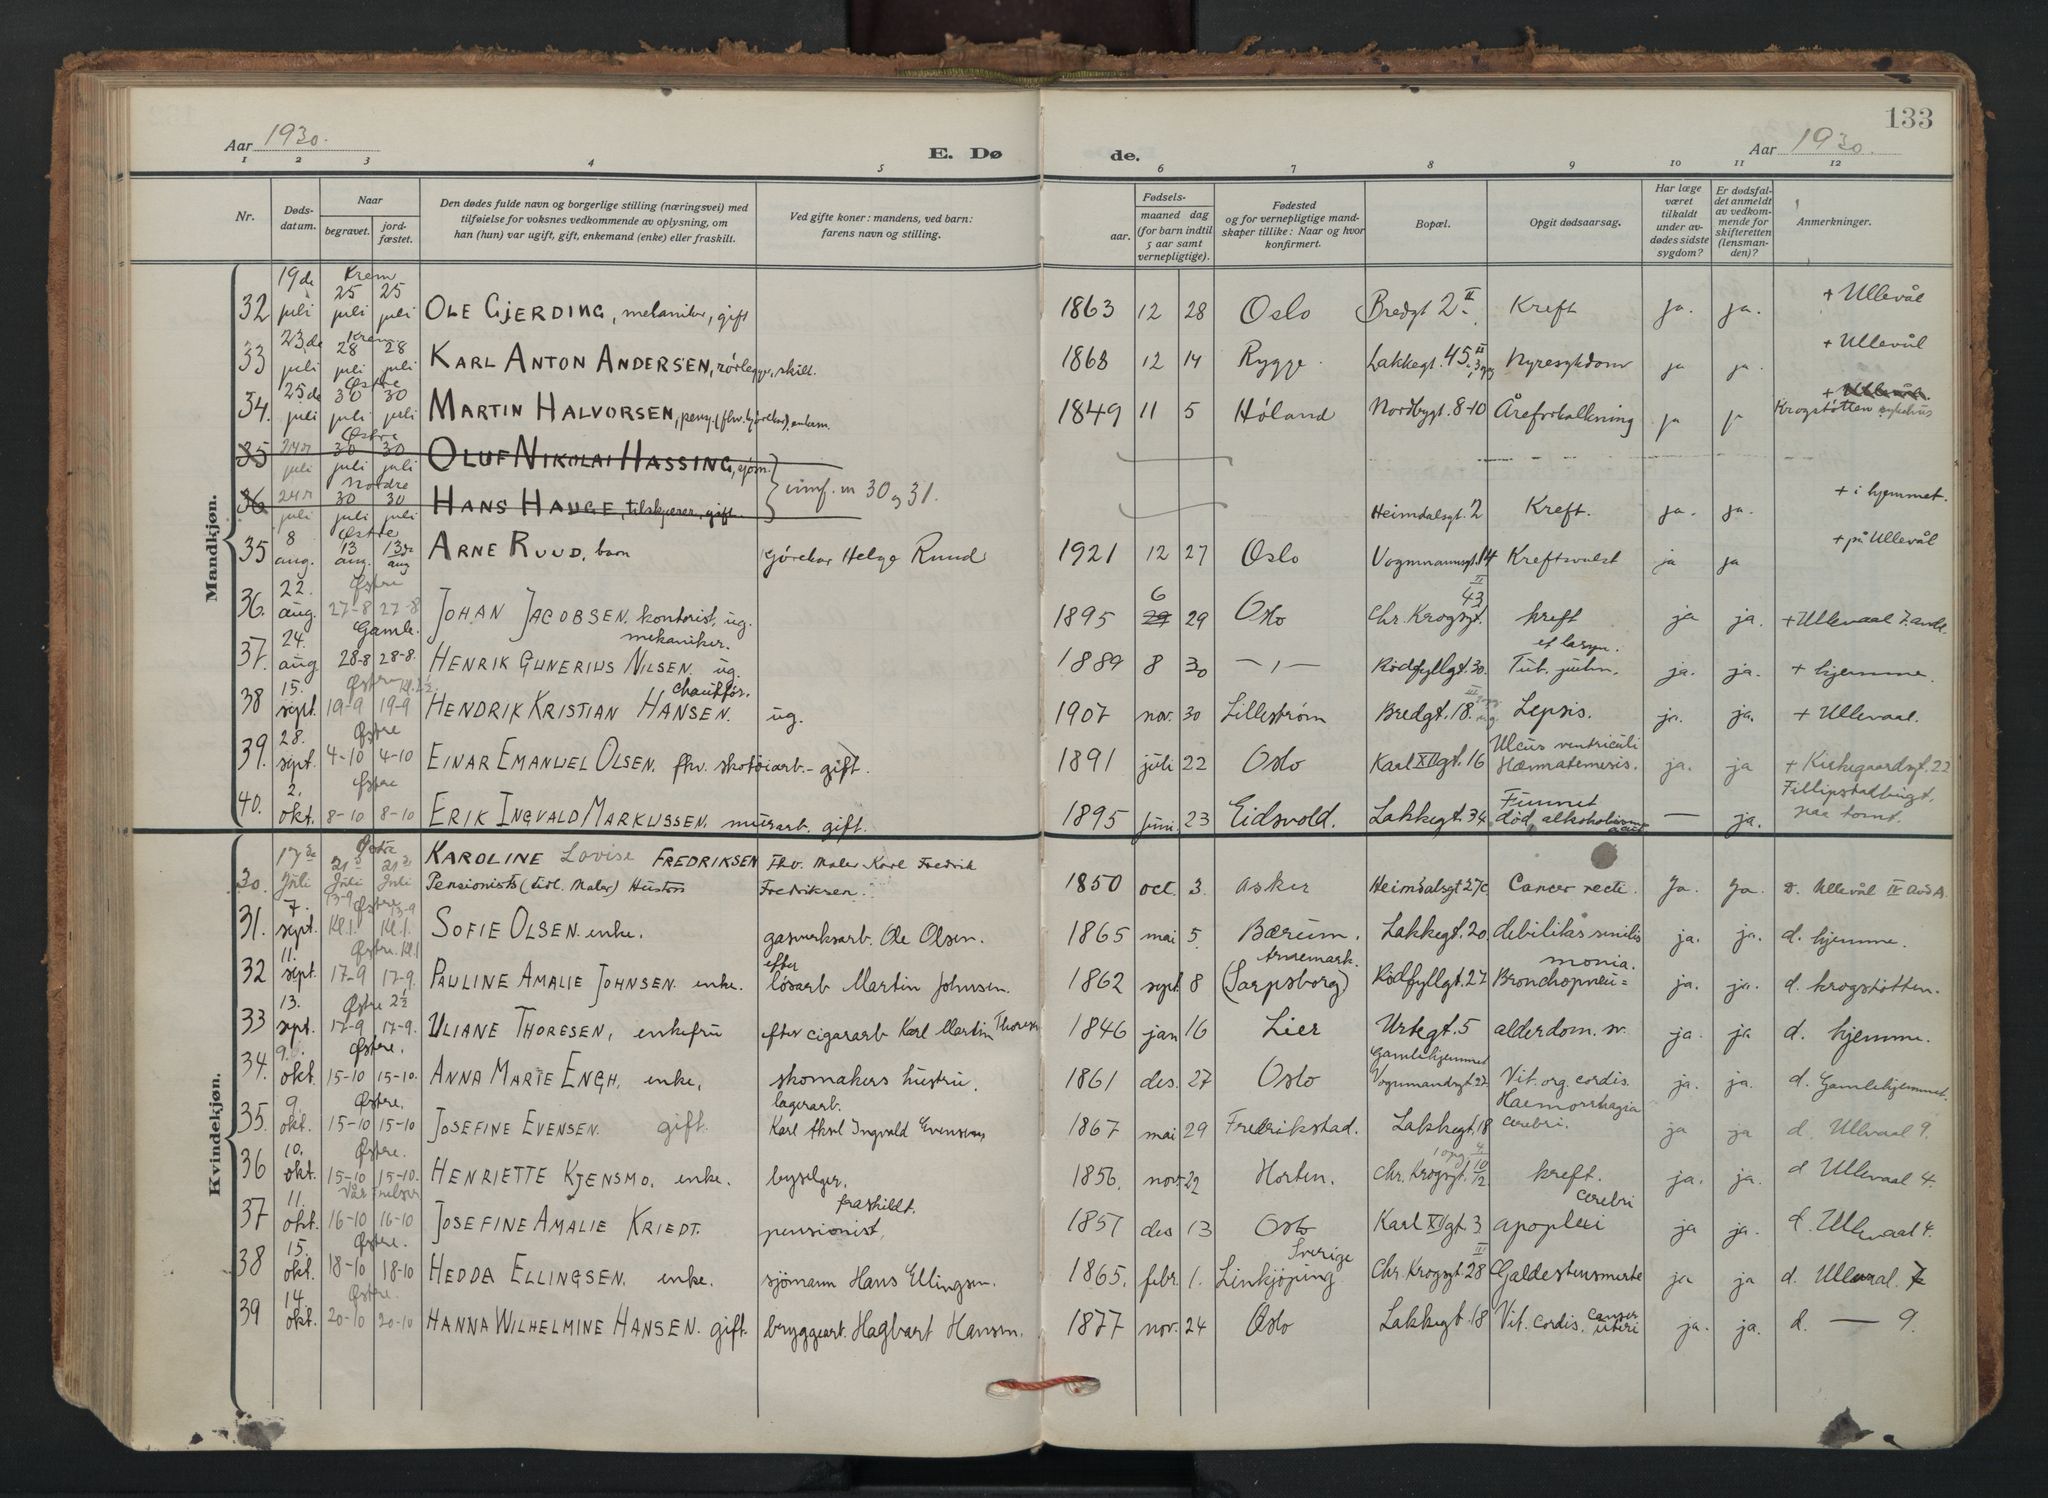 133
Aar 1930.
E. Dø
de.
Aar 1930.
1 2 3 4 5 6 7 8 9 10 11 12
Nr.
Døds-
datum.
Naar
begravet.
jord-
fæstet.
Den dødes fulde navn og borgerlige stilling (næringsvei) med
tilføielse for voksnes vedkommende av oplysning, om
han (hun) var ugift, gift, enkemand (enke) eller fraskilt.
Ved gifte koner: mandens, ved barn:
farens navn og stilling.
Fødsels-
aar.
maaned dag
(for barn indtil
5 aar samt
vernepligtige).
Fødested
og for vernepligtige mand-
skaper tillike: Naar og hvor
konfirmert.
Bopæl.
Opgit dødsaarsag.
Har læge
været
tilkaldt
under av-
dødes sidste
sygdom?
Er dødsfal-
det anmeldt
av vedkom-
mende for
skifteretten
(lensman-
den)?
Anmerkninger.
Mandkjøn.
32 19de juli Krem 25 juli 25 juli OLE GJERDING, mekaniker, gift 1863 12 28 Oslo Bredgt 2 II Kreft ja. ja. + Ullevål
33 23.de juli Krem 28 juli 28 juli KARL ANTON ANDERSEN, rørlegger, skilt. 1868 12 14 Rygge. Lakkegt. 45 III Nyresykdom ja ja. + Ullevål
34. 25de juli Østre 30 juli 30 juli MARTIN HALVORSEN, (fhv. kjørekar), enkem. 1849 11 5 Høland Nordbygt. 8-10 Åreforkalkning ja ja + Ullevål
Krogstøtten sykehus
35 24 juli Østre 30 juli 30 juli OLUF NIKOLAI HASSING, sjøm.
36 24 juli Nordre 30 juli 30 juli HANS HAUGE, tilskjærer, gift. innf. nr 30 og 31. Heimdalsgt. 2 Kreft. ja. ja. + i hjemmet.
35 8 aug. Østre 13 aug. 13de aug ARNE RUUD, barn kjørekar Helge Ruud 1921 12 27 Oslo Vognmannsgt. 14 Kreftsvulst ja ja + på Ullevål
36. 22. aug Østre 27-8 27-8 JOHAN JACOBSEN. kontorist, ug. 1895 6 29 29 Oslo Chr. Krogsgt. 43 II kreft ja ja. + Ullevaal 7. avd.
37. 24. aug Gamle. 28-8 28-8. HENRIK GUNERIUS NILSEN, mekaniker. ug. 1889 8 30 — „ — Rødfyllgt. 30. Tub. pulm. et laryn. ja. ja. + hjemme.
38 15. sept. Østre kl. 2½ 19-9 19-9 HENDRIK KRISTIAN HANSEN. chauffør. ug. 1907 nov. 30 Lillestrøm Bredgt. 18. III Sepsis. ja. ja. + Ullevaal.
39. 28. sept. Østre 4-10 4-10 EINAR EMANUEL OLSEN. fhv. skotøiarb. - gift. 1891 juli 22 Oslo Karl XIIgt. 16 Ulcus ventriculi
Hæmatemesis. ja. ja + Kirkegaardsgt. 22
40. 2. okt. Østre 8-10 8-10 ERIK INGVALD MARKUSSEN. murarb. gift. 1895 juni 23 Eidsvold. Lakkegt. 34 Funnet
død, alkoholisme — ja. Fillipstadbugt,
paa tomt.
Kvindekjøn.
30. 17de Juli Østre 21 Juli 21 Juli KAROLINE Lovise FREDRIKSEN
Pensionists (tidl. Maler) Hustru Fhv. Maler Karl Fredrik
Fredriksen. 1850 oct. 3. Asker Heimdalsgt 27c Cancer recti. Ja. Ja. d. Ullevål IV avd A.
31. 7. sept. Østre 13-9 kl. 1. 13-9 kl. 1. SOFIE OLSEN. enke. gasverksarb. Ole Olsen. 1865 mai 5 Bærum. Lakkegt. 20. debilitas senilis ja. ja. d. hjemme.
32 11. sept. Østre kl 1 17-9 17-9. PAULINE AMALIE JOHNSEN. enke. efter
løsarb Martin Johnsen. 1862 sept. 8 (Sarpsborg) Rødfyllgt. 27 Bronchopneu=
monia. ja. ja. d. Krogstøtten.
33 13. sept. Østre 2½ 17-9 17-9. ULIANE THORESEN, enkefru efter cigararb Karl Martin Thoresen 1846 jan 16 Lier Urtegt. 5 alderdom. sv. ja. ja. d. hjemme.
34. 9. okt. Østre. 15-10 15-10. ANNA MARIE ENGH. enke, skomakers hustru. 1861 des. 27 Oslo Gamlehjemmet
Vognmandsgt. 22 Vit. org. cordis. ja. ja. d. Gamlehjemmet.
35. 9. okt. Østre. 15-10 15-10 JOSEFINE EVENSEN. gift. lagerarb.
Karl Aksel Ingvald Evensens 1867 mai 29 Fredrikstad. Lakkegt. 18 Haemorrhagia
cerebri. ja ja d. Ullevaal 9.
36 10. okt. Østre. 15-10 15-10. HENRIETTE KJENSMO. enke. byselger. 1856. nov. 22 Horten. Chr. Krogsgt. kreft. ja. ja. d Ullevaal 4.
37 11. okt. Vår Frelser 16-10 16-10 JOSEFINE AMALIE KRIEDT. fraskildt.
pensionist, 1857 des 13 Oslo Karl XIIgt. 3 apoplexi cerebri ja ja. d. Ullevaal 4.
38 15. okt. Østre. 18-10 18-10 HEDDA ELLINGSEN. enke. sjømann Hans Ellingsen. 1865. febr. 1. Linkjöping Sverige Chr. Krogsgt. 28 III Galdestensmerte ja ja d. Ullevaal. 7
39 14 okt. Østre. 20-10 20-10 HANNA WILHELMINE HANSEN. gift. bryggearb. Hagbart Hansen. 1877 nov. 24 Oslo Lakkegt. 18 Vit. cordis. cancer uteri ja. ja. d. — 9.